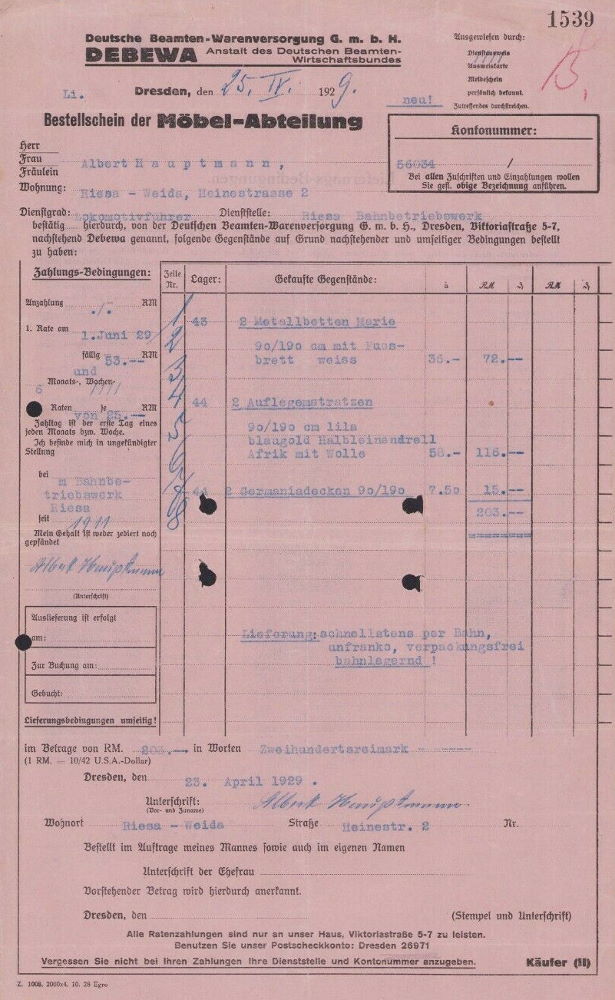 1539
Deutsche Beamten-Warenversorgung G. m. b. H.
DEBEWA Anstalt des Deutschen Beamten-Wirtschaftsbundes
Ausgewiesen durch:
Dienstausweis
Ausweiskarte
Meldeschein
persönlich bekannt.
Zutreffendes durchstreichen.
Li. Dresden, den 25. IV. 1929.
neu!
Bestellschein der Möbel-Abteilung
Kontonummer:
56034 /
Bei allen Zuschriften und Einzahlungen wollen
Sie gefl. obige Bezeichnung anführen.
Herr
Frau Albert Hauptmann,
Fräulein
Wohnung: Riesa - Weida, Heinestrasse 2
Dienstgrad: Lokomotivführer Dienststelle: Riesa Bahnbetriebswerk
bestätig hierdurch, von der Deutschen Beamten-Warenversorgung G. m. b. H., Dresden, Viktoriastraße 5-7,
nachstehend Debewa genannt, folgende Gegenstände auf Grund nachstehender und umseitiger Bedingungen bestellt
zu haben:
Zahlungs-Bedingungen: Zeile Nr. Lager: Gekaufte Gegenstände: à RM ₰ RM ₰
Anzahlung ./. RM
1. Rate am 1.Juni 29
fällig 53.-- RM
und
6 Monats-, Wochen-
Raten je RM
von 25.--
Zahltag ist der erste Tag eines
jeden Monats bzw. Woche.
Ich befinde mich in ungekündigter
Stellung
bei
m Bahnbe-
triebswerk
Riesa
seit 1911
Mein Gehalt ist weder zediert noch
gepfändet
Albert Hauptmann
(Unterschrift)
1
2
3
4
5
6
7
8
43 2 Metallbetten Marie
90/190 cm mit Fuss-
brett weiss 36.- 72.--
44 2 Auflegematratzen
90/190 cm lila
blaugold Halbleinendrell
Afrik mit Wolle 58.- 116.--
44 2 Germaniadecken 90/190 7.50 15.--
203.--
Lieferung: schnellstens per Bahn,
unfranko, verpackungsfrei
bahnlagernd !
Auslieferung ist erfolgt
am:
Zur Buchung am:
Gebucht:
Lieferungsbedingungen umseitig!
im Betrage von RM. 203.-- in Worten Zweihundertdreimark
(1 RM. = 10/42 U.S.A.-Dollar)
Dresden, den 23. April 1929 .
Unterschrift: Albert Hauptmann
(Vor- und Zuname)
Wohnort Riesa - Weida Straße Heinestr. 2 Nr.
Bestellt im Auftrage meines Mannes sowie auch im eigenen Namen
Unterschrift der Ehefrau
Vorstehender Betrag wird hierdurch anerkannt.
Dresden, den (Stempel und Unterschrift)
Alle Ratenzahlungen sind nur an unser Haus, Viktoriastraße 5-7 zu leisten.
Benutzen Sie unser Postscheckkonto: Dresden 26971
Vergessen Sie nicht bei Ihren Zahlungen Ihre Dienststelle und Kontonummer anzugeben. Käufer (II)
Z. 1008. 2000x4. 10. 28 Egro